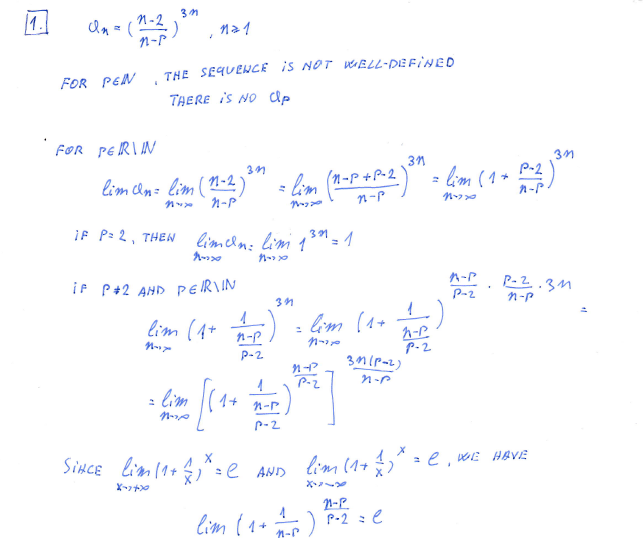 1. a_n = ( (n-2)/(n-p) )^{3n} , n≥1
FOR p∈ℕ , THE SEQUENCE IS NOT WELL-DEFINED
THERE IS NO a_p
FOR p∈ℝ\ℕ
lim a_n = lim_{n→∞} ( (n-2)/(n-p) )^{3n} = lim_{n→∞} ( (n-p+p-2)/(n-p) )^{3n} = lim_{n→∞} ( 1 + (p-2)/(n-p) )^{3n}
IF p=2, THEN lim_{n→∞} a_n = lim_{n→∞} 1^{3n} = 1
IF p≠2 AND p∈ℝ\ℕ
lim_{n→∞} ( 1 + 1/((n-p)/(p-2)) )^{3n} = lim_{n→∞} ( 1 + 1/((n-p)/(p-2)) )^{(n-p)/(p-2) · (p-2)/(n-p) · 3n} =
= lim_{n→∞} [ ( 1 + 1/((n-p)/(p-2)) )^{(n-p)/(p-2)} ]^{3n(p-2)/(n-p)}
SINCE lim_{x→+∞} (1+1/x)^x = e AND lim_{x→-∞} (1+1/x)^x = e , WE HAVE
lim ( 1 + 1/(n-p) )^{(n-p)/(p-2)} = e